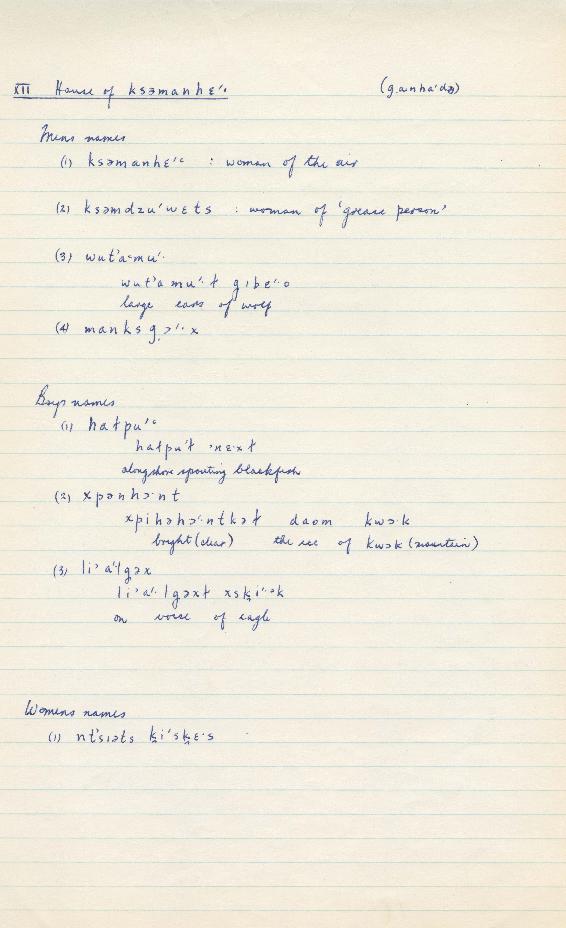 XII House of ksəmanhɛ'ᶜ (g̣anha'də)
Mens names
(1) ksəmanhɛ'ᶜ : woman of the air
(2) ksəmdzu'wɛts : woman of 'grease person'
(3) wut'a·mu'·
wut'amu'·ł gıbɛ'·o
large ears of wolf
(4) manksg̣ɔ'·x
Boys names
(1) hałpu'ᶜ
hałpu'ł ·nɛ·xł
alongshore spouting blackfish
(2) xpənhɔ·nt
xpihəhɔ·ntkəł daom kwək
bright (clear) the ice of kwək (mountain)
(3) li'a'lgəx
li'a'·lgəxł xsḳi'·ək
on voice of eagle
Womens names
(1) nt'sıəts ḳi'sḳɛ·s